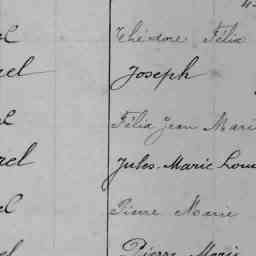 el Théodore Félix
rel Joseph
el Félix Jean Mari
rel Jules-Marie Loui
el Pierre Marie
el Pierre Marie